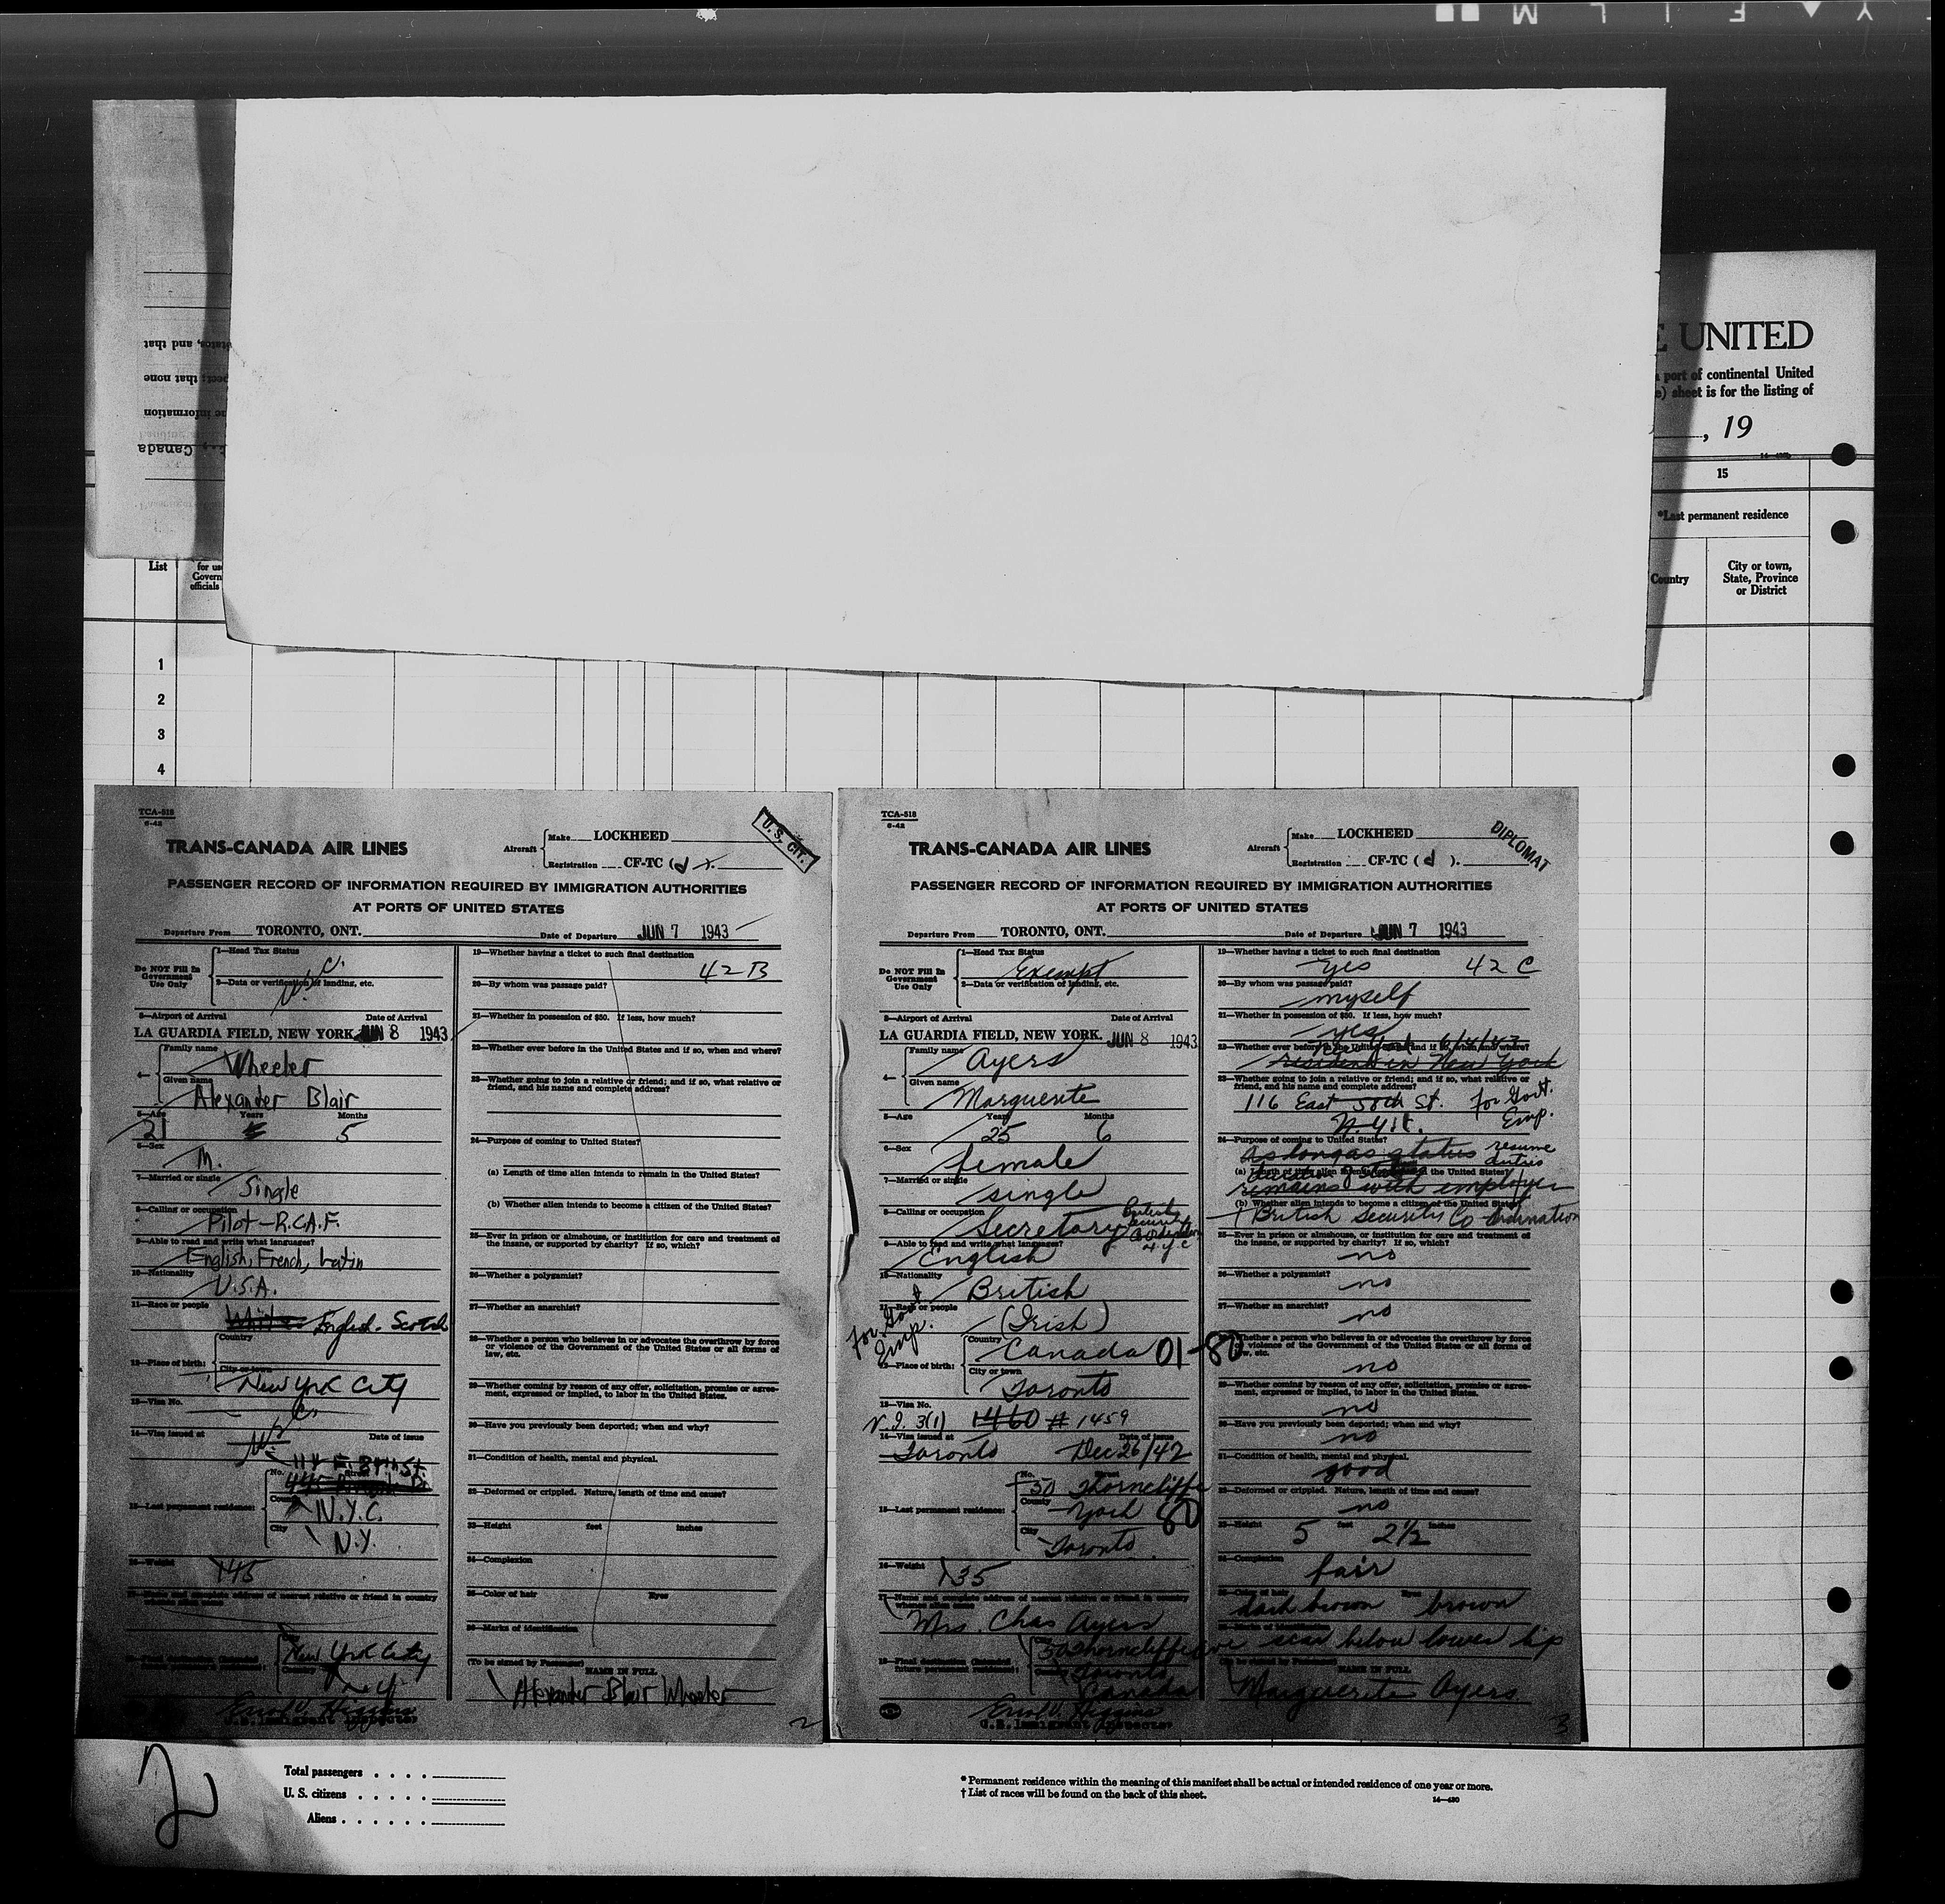 Y A F I L M
E UNITED
a port of continental United
e) sheet is for the listing of
, 19
15
*Last permanent residence
List
for use
Govern
officials
Country
City or town,
State, Province
or District
states, and that
that none
information
Canada
1
2
3
4
TCA-518
6-42
TRANS-CANADA AIR LINES
Aircraft
Make LOCKHEED
Registration CF-TC (d).
U.S. CIT.
PASSENGER RECORD OF INFORMATION REQUIRED BY IMMIGRATION AUTHORITIES
AT PORTS OF UNITED STATES
Departure From TORONTO, ONT. Date of Departure JUN 7 1943
Do NOT Fill In
Government
Use Only
1—Head Tax Status
2—Data or verification of landing, etc.
3—Airport of Arrival Date of Arrival
LA GUARDIA FIELD, NEW YORK. JUN 8 1943
4—
Family name
Wheeler
Given name
Alexander Blair
5—Age Years Months
21 5
6—Sex
M.
7—Married or single
Single
8—Calling or occupation
Pilot-R.C.A.F.
9—Able to read and write what languages?
English, French, Latin
10—Nationality
U.S.A.
11—Race or people
White English. Scotch
12—Place of birth:
Country
City or town
New York City
13—Visa No.
14—Visa issued at Date of Issue
114 E. 84th St.
15—Last permanent residence:
No. Street
County
N.Y.C.
City
N.Y.
16—Weight
145
17—Name and complete address of nearest relative or friend in country whence alien came
18—Final destination (Intended future permanent residence):
City
New York City
Country
N.Y.
Errol V. Higgins
U.S. Immigrant Inspector
19—Whether having a ticket to such final destination
42 B
20—By whom was passage paid?
21—Whether in possession of $50. If less, how much?
22—Whether ever before in the United States and if so, when and where?
23—Whether going to join a relative or friend; and if so, what relative or
friend, and his name and complete address?
24—Purpose of coming to United States?
(a) Length of time alien intends to remain in the United States?
(b) Whether alien intends to become a citizen of the United States?
25—Ever in prison or almshouse, or institution for care and treatment of
the insane, or supported by charity? If so, which?
26—Whether a polygamist?
27—Whether an anarchist?
28—Whether a person who believes in or advocates the overthrow by force
or violence of the Government of the United States or all forms of
law, etc.
29—Whether coming by reason of any offer, solicitation, promise or agree-
ment, expressed or implied, to labor in the United States.
30—Have you previously been deported; when and why?
31—Condition of health, mental and physical.
32—Deformed or crippled. Nature, length of time and cause?
33—Height feet inches
34—Complexion
35—Color of hair Eyes
36—Marks of identification
(To be signed by Passenger)
NAME IN FULL
Alexander Blair Wheeler
2
TCA-518
6-42
TRANS-CANADA AIR LINES
Aircraft
Make LOCKHEED
Registration CF-TC (d).
DIPLOMAT
PASSENGER RECORD OF INFORMATION REQUIRED BY IMMIGRATION AUTHORITIES
AT PORTS OF UNITED STATES
Departure From TORONTO, ONT. Date of Departure JUN 7 1943
Do NOT Fill In
Government
Use Only
1—Head Tax Status
Exempt
2—Data or verification of landing, etc.
3—Airport of Arrival Date of Arrival
LA GUARDIA FIELD, NEW YORK. JUN 8 1943
4—
Family name
Ayers
Given name
Marguerite
5—Age Years Months
25 6
6—Sex
female
7—Married or single
single
8—Calling or occupation
Secretary
9—Able to read and write what languages?
English
10—Nationality
British
11—Race or people
(Irish)
for Govt
Emp.
12—Place of birth:
Country
Canada 01-80
City or town
Toronto
13—Visa No.
V.I. 3(1) 1460 # 1459
14—Visa issued at Date of Issue
Toronto Dec 26/42
15—Last permanent residence:
No. Street
50 Thorncliffe
County
York 80
City
Toronto
16—Weight
135
17—Name and complete address of nearest relative or friend in country
whence alien came
Mrs. Chas Ayers
50 Thorncliffe Ave
18—Final destination (Intended
future permanent residence):
Toronto
Canada
Errol V. Higgins
U.S. Immigrant Inspector
19—Whether having a ticket to such final destination
yes 42 C
20—By whom was passage paid?
myself
21—Whether in possession of $50. If less, how much?
yes
22—Whether ever before in the United States and if so, when and where?
resident in New York
23—Whether going to join a relative or friend; and if so, what relative or
friend, and his name and complete address?
116 East 58th St. for Govt.
N.Y.C. Emp.
24—Purpose of coming to United States?
as long as status resume
duties
(a) Length of time alien intends to remain in the United States?
remains with employer
(b) Whether alien intends to become a citizen of the United States?
British Security Co-ordination
25—Ever in prison or almshouse, or institution for care and treatment of
the insane, or supported by charity? If so, which?
no
26—Whether a polygamist?
no
27—Whether an anarchist?
no
Whether a person who believes in or advocates the overthrow by force
or violence of the Government of the United States or all forms of
law, etc.
no
29—Whether coming by reason of any offer, solicitation, promise or agree-
ment, expressed or implied, to labor in the United States.
no
30—Have you previously been deported; when and why?
no
31—Condition of health, mental and physical.
good
32—Deformed or crippled. Nature, length of time and cause?
no
33—Height 5 feet 2½ inches
34—Complexion
fair
35—Color of hair Eyes
dark brown brown
36—Marks of identification
scar below lower lip
(To be signed by Passenger)
NAME IN FULL
Marguerite Ayers
3
2
Total passengers . . . .
U. S. citizens . . . . .
Aliens . . . . . .
* Permanent residence within the meaning of this manifest shall be actual or intended residence of one year or more.
† List of races will be found on the back of this sheet.